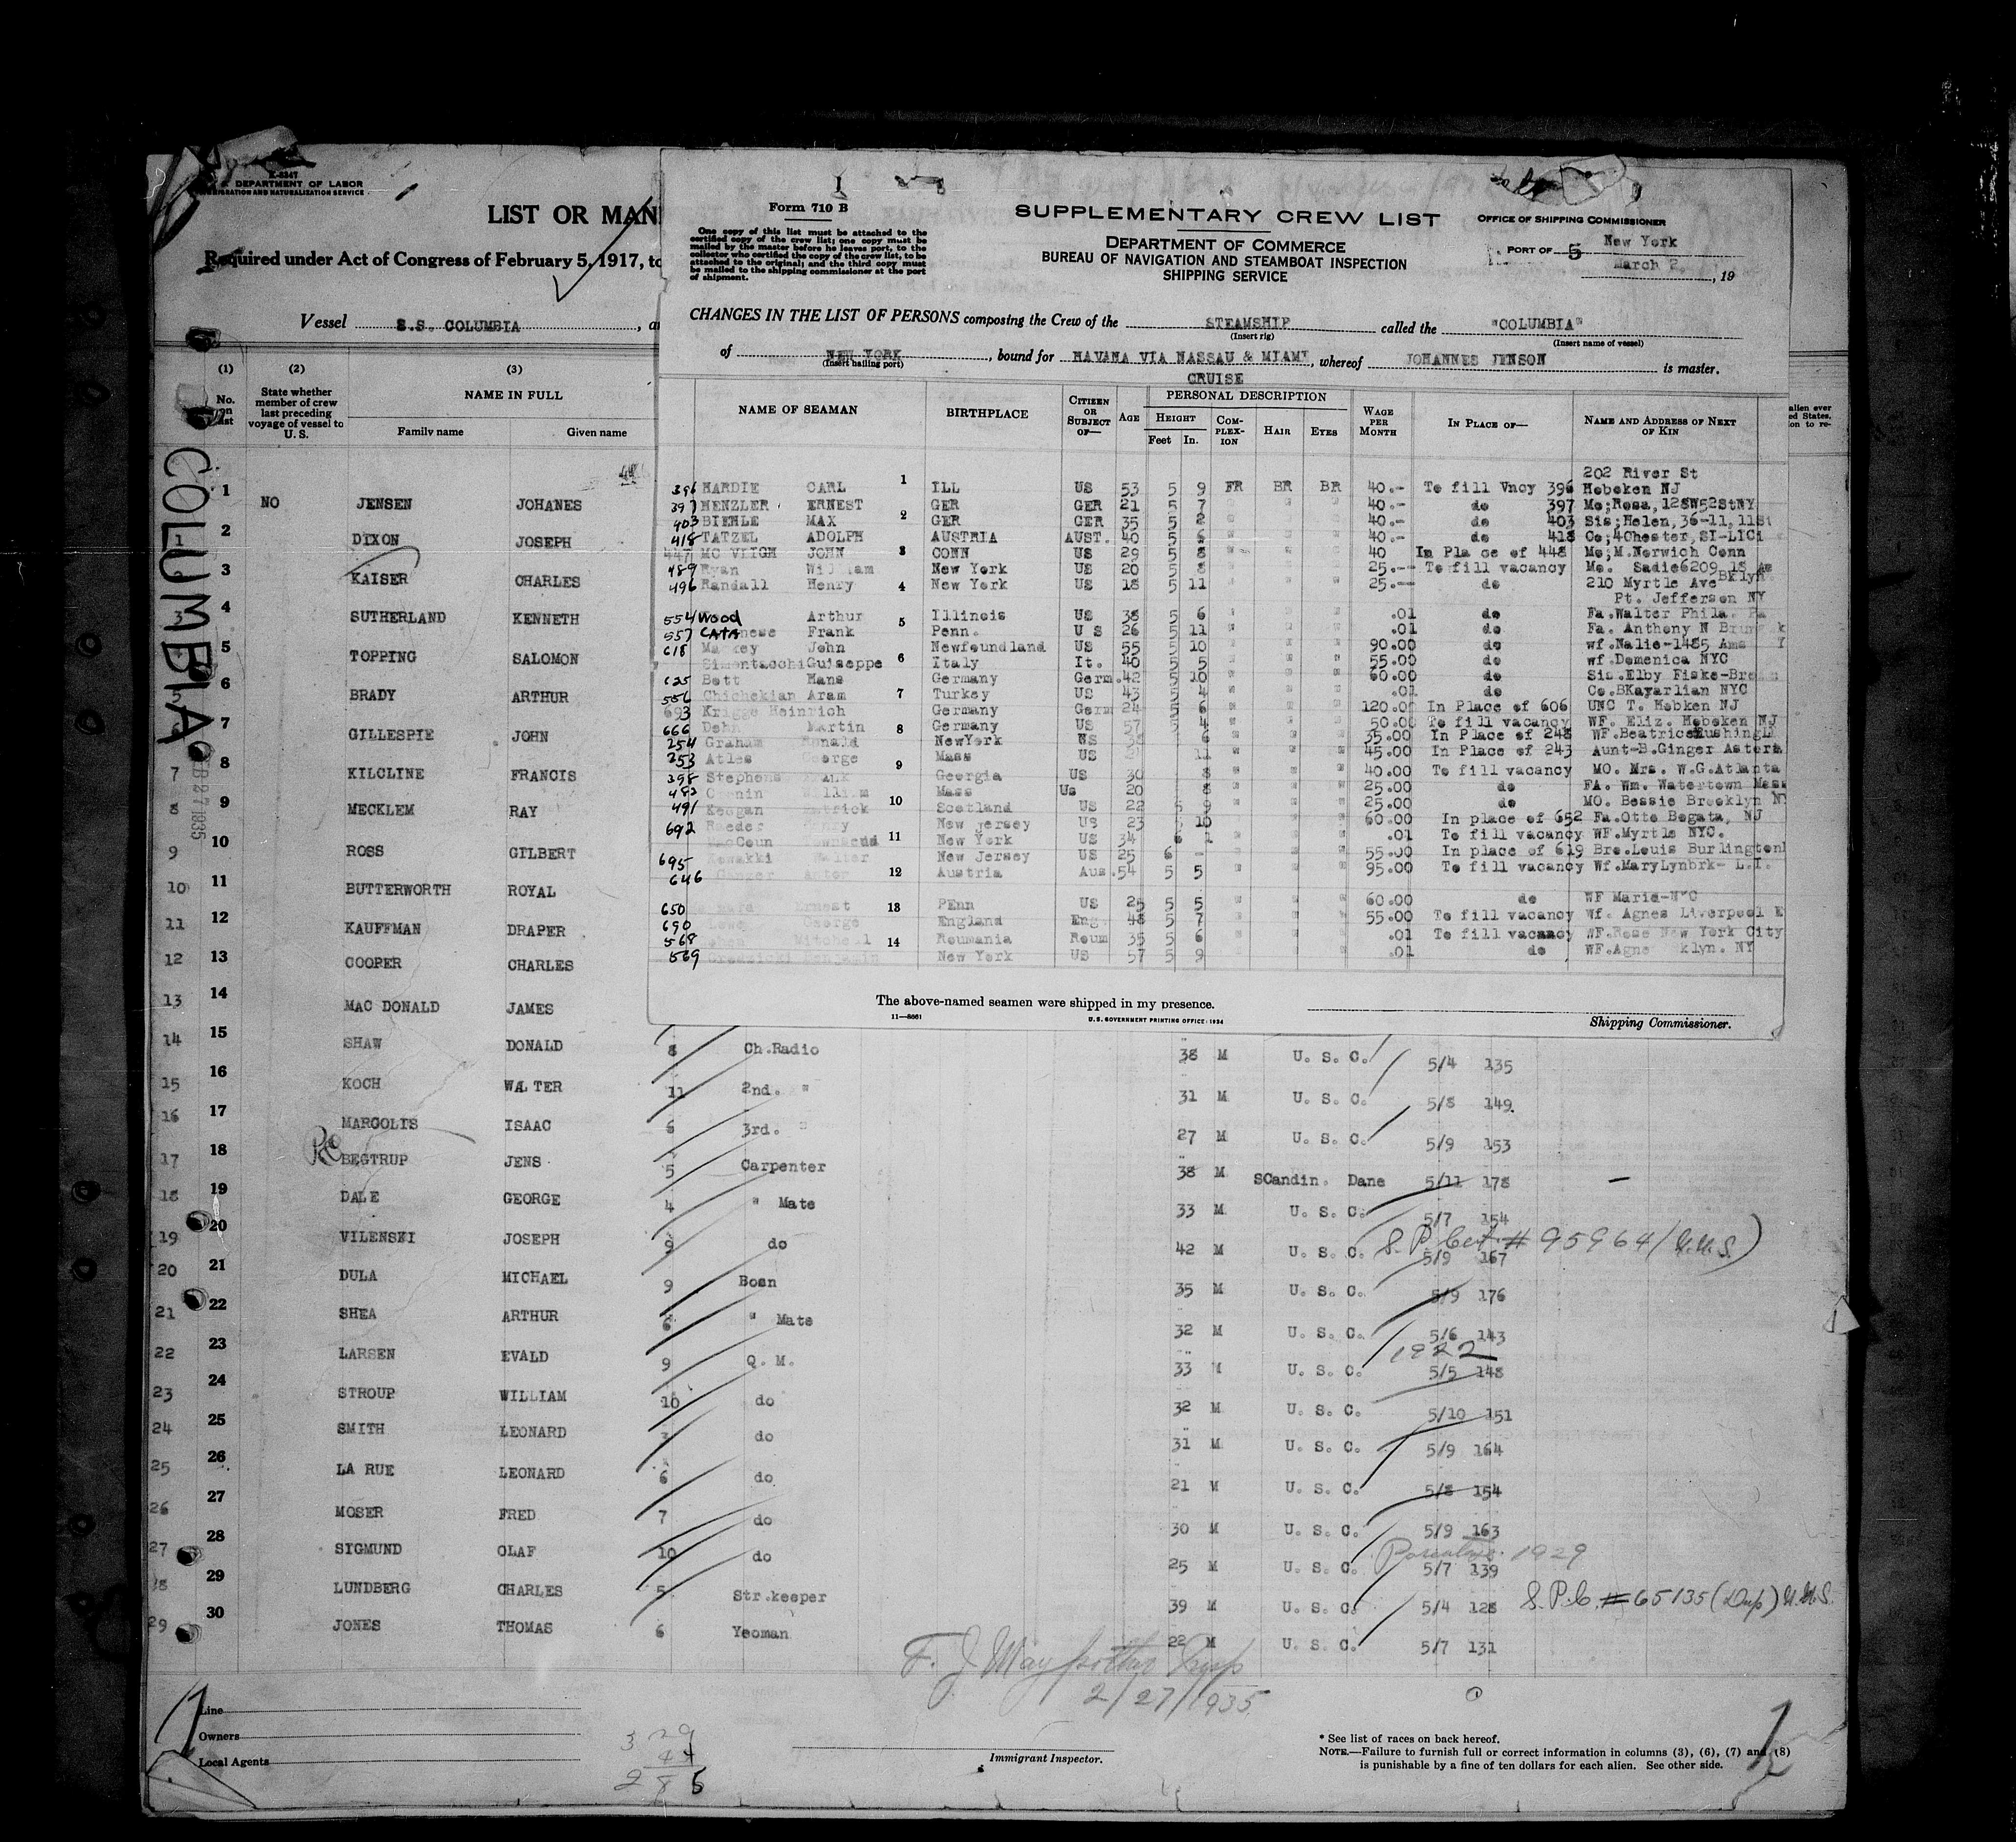 K-8347
DEPARTMENT OF LABOR
IMMIGRATION AND NATURALIZATION SERVICE
LIST OR MAN
Required under Act of Congress of February 5, 1917, to
Vessel S.S. COLUMBIA , a
(1) (2) (3)
No. on list
State whether member of crew last preceding voyage of vessel to U. S.
NAME IN FULL
Family name Given name
COLUMBIA
FEB 27 1935
1
Form 710 B
One copy of this list must be attached to the
certified copy of the crew list; one copy must be
mailed by the master before he leaves port, to the
collector who certified the copy of the crew list, to be
attached to the original; and the third copy must
be mailed to the shipping commissioner at the port
of shipment.
SUPPLEMENTARY CREW LIST
DEPARTMENT OF COMMERCE
BUREAU OF NAVIGATION AND STEAMBOAT INSPECTION
SHIPPING SERVICE
OFFICE OF SHIPPING COMMISSIONER
PORT OF New York
5
March 2, , 19
CHANGES IN THE LIST OF PERSONS composing the Crew of the STEAMSHIP called the "COLUMBIA"
(Insert rig) (Insert name of vessel)
of NEW YORK , bound for HAVANA VIA NASSAU & MIAMI , whereof JOHANNES JENSON is master.
(Insert hailing port)
CRUISE
NAME OF SEAMAN BIRTHPLACE CITIZEN OR SUBJECT OF— AGE PERSONAL DESCRIPTION WAGE PER MONTH IN PLACE OF— NAME AND ADDRESS OF NEXT OF KIN
HEIGHT COMPLEXION HAIR EYES
Feet In.
alien ever
ed States,
ion to re-
202 River St
396 HARDIE CARL 1 ILL US 53 5 9 FR BR BR 40.- To fill Vncy 396 Hoboken NJ
397 HENZLER ERNEST GER GER 21 5 7 " " " 40.- do 397 Mo;Rosa, 128W52StNY
403 BIEHLE MAX 2 GER GER 35 5 2 " " " 40.- do 403 Sis;Helen, 36-11, 11St
418 TATZEL ADOLPH AUSTRIA AUST. 40 5 6 " " " 40.- do 418 Co;4Chester,SI-LICi
447 MC VEIGH JOHN 3 CONN US 29 5 8 " " " 40 In Place of 448 Mo;M.Norwich Conn
489 Ryan William New York US 20 5 8 " " " 25.-- To fill vacancy Mo. Sadie6209 18 Av
496 Randall Henry 4 New York US 18 5 11 " " " 25.-- do 210 Myrtle Ave Bklyn
Pt. Jefferson NY
554 Wood Arthur Illinois US 38 5 6 " " " .01 do Fa.Walter Phila. Pa
557 CATAnese Frank 5 Penn. U S 26 5 11 " " " .01 do Fa. Anthony N Brun k
618 Mackey John Newfoundland US 55 5 10 " " " 90.00 do wf.Nalie-1485 Ams Y
Simontacchi Guiseppe 6 Italy It. 40 5 5 " " " 55.00 do wf.Domenica NYC
625 Bott Hans Germany Germ. 42 5 10 " " " 60.00 do Sis.Elby Fiske-Bro
556 Chichekian Aram 7 Turkey US 43 5 4 " " " .01 do Co.BKayarlian NYC
693 Krigge Heinrich Germany Germ 24 5 6 " " " 120.00 In Place of 606 UNC T. Hobken NJ
666 Dohn Martin 8 Germany US 57 5 4 " " " 50.00 To fill vacancy WF. Eliz. Hoboken NJ
254 Graham Ronald NewYork US 6 " " " 35.00 In Place of 248 WF.Beatrice
253 Atles George 9 Mass US 11 " " " 45.00 In Place of 243 Aunt-B.Ginger Astoria
398 Stephens Georgia US 30 8 " " " 40.00 To fill vacancy MO. Mrs. W.G.Atlanta
482 Cronin William Mass Us 20 8 " " " 25.00 do FA. Wm. Watertown Mass
491 Keegan Patrick 10 Scotland US 22 5 9 " " " 25.00 do MO. Bessie Brooklyn NY
692 Raeder Henry New Jersey US 23 5 10 " " " 60.00 In place of 652 Fa.Otto Bogata, NJ
MacCoun Townsend 11 New York US 34 6 1 " " " .01 To fill vacancy WF.Myrtle NYC.
695 Walter New Jersey US 25 6 - " " " 55.00 In place of 619 Bro.Louis Burlington
646 Ganzer 12 Austria Aus. 54 5 5 " " " 95.00 To fill vacancy Wf.MaryLynbrk- L.I.
650 Ernest 13 PEnn US 25 5 5 " " " 60.00 do WF Marie-NYC
690 Lowe George England Eng. 48 5 7 " " " 55.00 To fill vacancy Wf. Agnes Liverpool E
568 Cohen Mitchell 14 Roumania Roum 35 5 6 " " " .01 To fill vacancy WF.Rose New York City
569 Benjamin New York US 57 5 9 " " " .01 do WF.Agne klyn. NY
The above-named seamen were shipped in my presence.
11—8661 U. S. GOVERNMENT PRINTING OFFICE: 1934
Shipping Commissioner.
1 NO JENSEN JOHANES
1 2 DIXON JOSEPH
3 KAISER CHARLES
3 4 SUTHERLAND KENNETH
5 TOPPING SALOMON
5 6 BRADY ARTHUR
7 GILLESPIE JOHN
7 8 KILCLINE FRANCIS
8 9 MECKLEM RAY
9 10 ROSS GILBERT
10 11 BUTTERWORTH ROYAL
11 12 KAUFFMAN DRAPER
12 13 COOPER CHARLES
13 14 MAC DONALD JAMES
14 15 SHAW DONALD 8 Ch.Radio 38 M U. S. C. 5/4 135
15 16 KOCH WALTER 11 2nd. " 31 M U. S. C. 5/8 149.
16 17 MARGOLIS ISAAC 6 3rd. " 27 M U. S. C. 5/9 153
17 18 BEGTRUP JENS 5 Carpenter 38 M SCandin. Dane 5/11 178 —
18 19 DALE GEORGE 4 " Mate 33 M U. S. C. 5/7 154
S.P. Cet # 95964 (U.U.S.)
19 20 VILENSKI JOSEPH 9 do 42 M U. S. C. 5/9 167
20 21 DULA MICHAEL 9 Bosn 35 M U. S. C. 5/9 176
21 22 SHEA ARTHUR 6 " Mate 32 M U. S. C. 5/6 143
1922
22 23 LARSEN EVALD 9 Q. M. 33 M U. S. C. 5/5 148
23 24 STROUP WILLIAM 10 do 32 M U. S. C. 5/10 151
24 25 SMITH LEONARD do 31 M U. S. C. 5/9 164
25 26 LA RUE LEONARD 6 do 21 M U. S. C. 5/8 154
26 27 MOSER FRED 7 do 30 M U. S. C. 5/9 163
27 28 SIGMUND OLAF 10 do 25 M U. S. C. 5/7 139
1929
28 29 LUNDBERG CHARLES 5 Str.keeper 39 M U. S. C. 5/4 128 S.P.C. #65135 (Dup) U.U.S.
29 30 JONES THOMAS 6 Yeoman 22 M U. S. C. 5/7 131
2/27/1935
Line
Owners
Local Agents
329
44
285
Immigrant Inspector.
* See list of races on back hereof.
NOTE.—Failure to furnish full or correct information in columns (3), (6), (7) and (8)
is punishable by a fine of ten dollars for each alien. See other side.